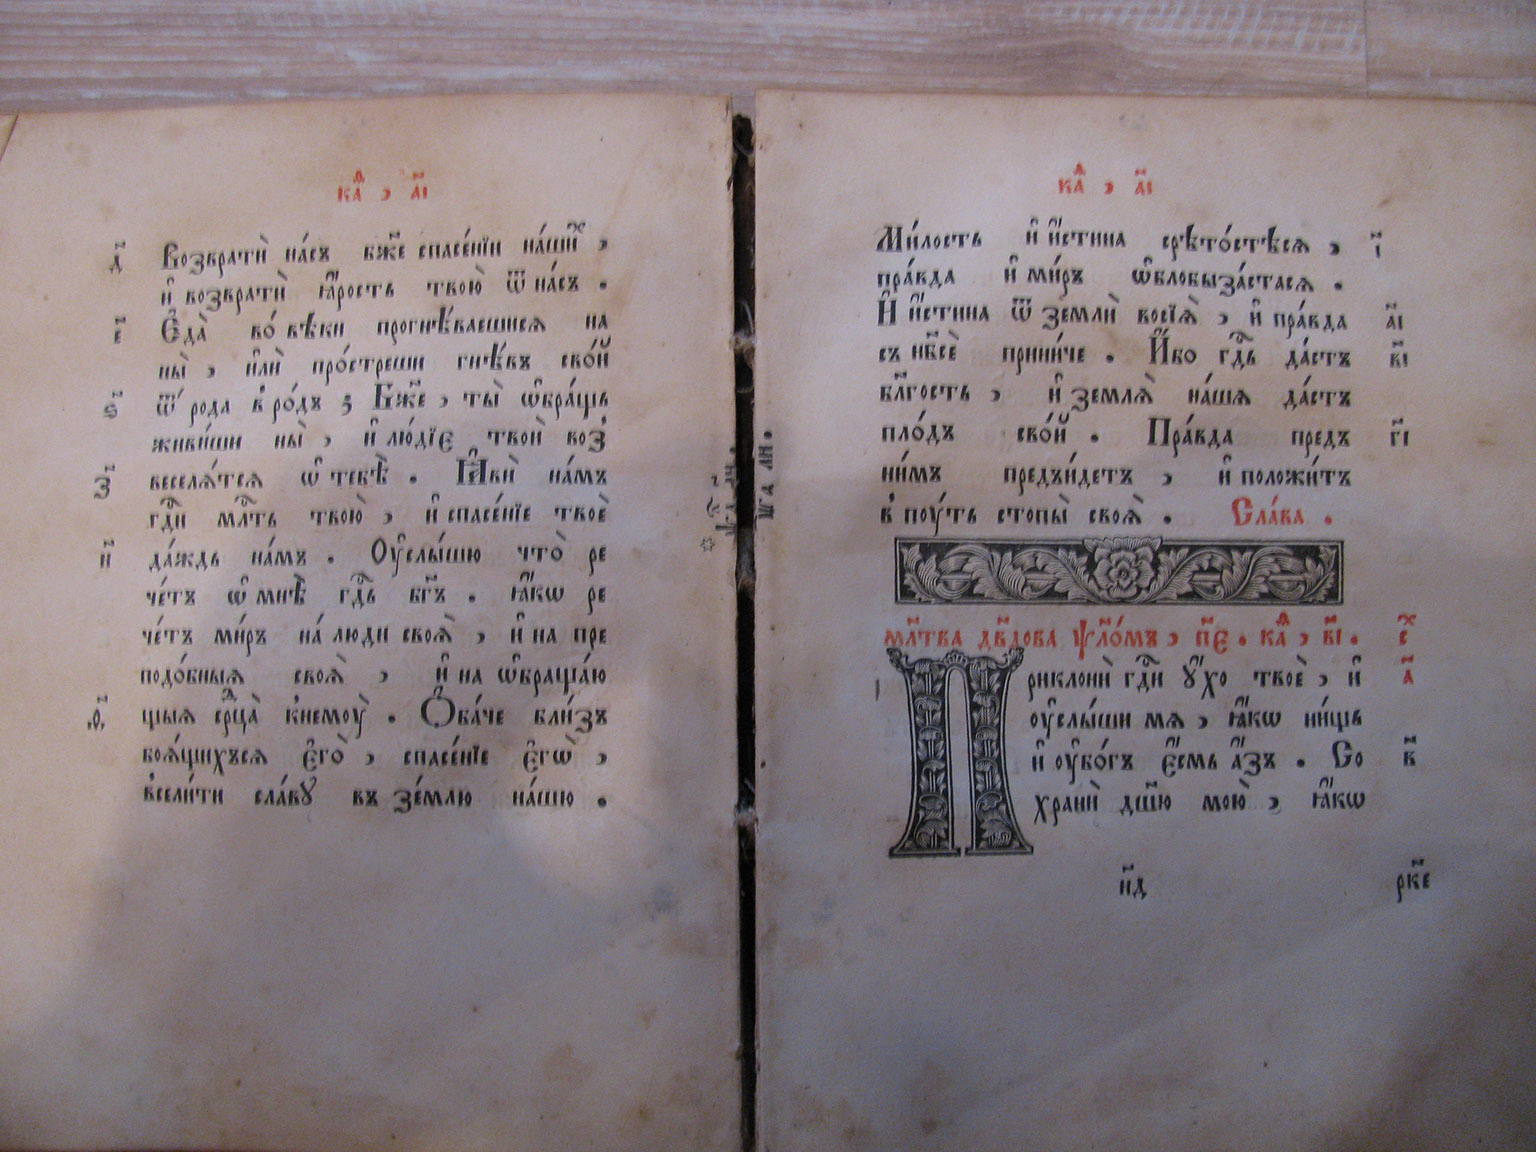 каⷴ҇ , а҃і
д҃ Возвратѝ на́съ бж҃е спасе́нїи на́шиⷯ ,
и҆ возвратѝ ꙗ҆́рость твою̀ ѿ на́съ .
є҃ Є҆да̀ во́ вѣки прогнѣ́ваешися на
ны̀ , и҆лѝ про́стреши гнѣ́въ сво́й
ѕ҃ ѿ рода в ро́дъ ; Бж҃е , ты̀ ѡ҆бра́щь
живи́ши ны̀ , и҆ лю́дїє твоѝ воз̾
з҃ веселѧ́тсѧ ѡ҆ тебѣ̀ . Ꙗ҆вѝ на́мъ
гдⷭ҇и млⷭ҇ть твою̀ , и҆ спасе́нїе твоѐ
и҃ да́ждь на́мъ . Оу҆слы́шю что̀ ре
че́тъ ѡ҆ мнѣ̀ гдⷭ҇ь бг҃ъ . ꙗ҆́кѡ ре
че́тъ ми́ръ на́ люди своѧ̀ , и҆ на пре
подо́бныѧ своѧ̀ , и҆ на ѡ҆браща́ю
ѳ҃ щыѧ срⷣца̀ к немоу̀ . Ѻ҆ба́че бли́зъ
боѧ́щихъсѧ є҆го̀ , спасе́нїе є҆гѡ̀ ,
всели́ти сла́вꙋ въ зе́млю на́шю .
каⷴ҇ , а҃і
Ми́лость и҆ и҆́стина срѣто́стѣсѧ , і҃
пра́вда и҆ ми́ръ ѡ҆блобыза́стасѧ .
И҆ и҆́стина ѿ землѝ восїѧ̀ , и҆ пра́вда а҃і
съ нб҃сѐ прини́че . И҆́бо гдⷭ҇ь да́стъ в҃і
бл҃гость , и҆ землѧ̀ на́шѧ да́стъ
пло́дъ сво́й . Пра́вда предъ г҃і
ни́мъ предъи́детъ , и҆ положи́тъ
в поу́ть стопы̀ своѧ̀ . Сла́ва .
мл҃тва дв҃дова ѱло́мъ , п҃є . каⷴ҇ , в҃і . с
Приклонѝ гдⷭ҇и ᲂу҆́хо твоѐ , и҆ а҃
оу҆слы́ши мѧ , ꙗ҆́кѡ ни́щь
и҆ оу҆бо́гъ є҆́смь а҆́зъ . Со в҃
хранѝ дш҃ю мою̀ , ꙗ҆́кѡ
н҃д рк҃є